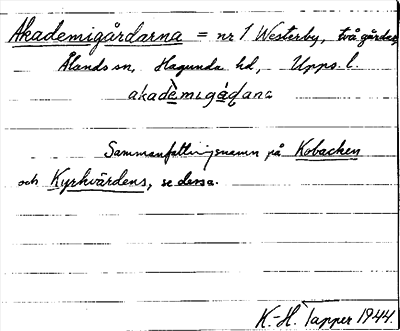 Akademigårdarna = nr 1 Westerby, två gårdar,
Ålands sn, Hagunda hd, Upps. l.
akadèmigáḍana
Sammanfattningsnamn på Kobacken
och Kyrkvärdens, se dessa.
K.-H. Tapper 1944.